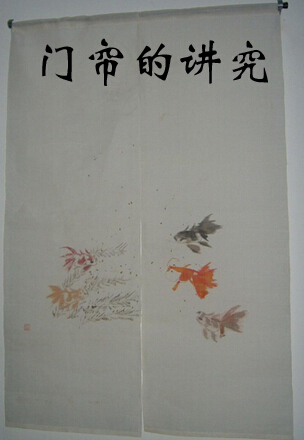 门帘的讲究